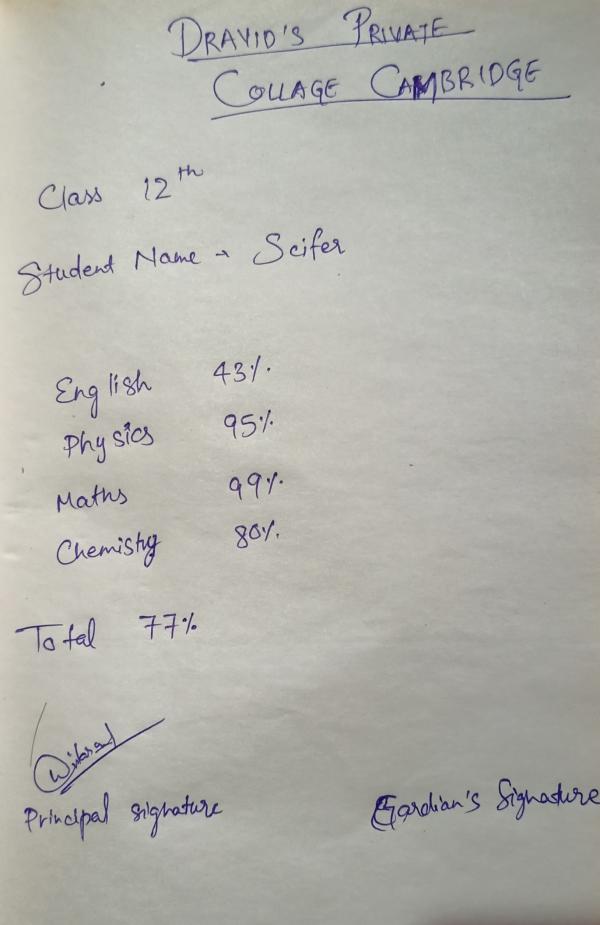 DRAVID'S PRIVATE
COLLAGE CAMBRIDGE
Class 12th
Student Name → Scifer
English 43%.
Physics 95%.
Maths 99%.
Chemistry 80%.
Total 77%
Principal signature
Gardian's Signature